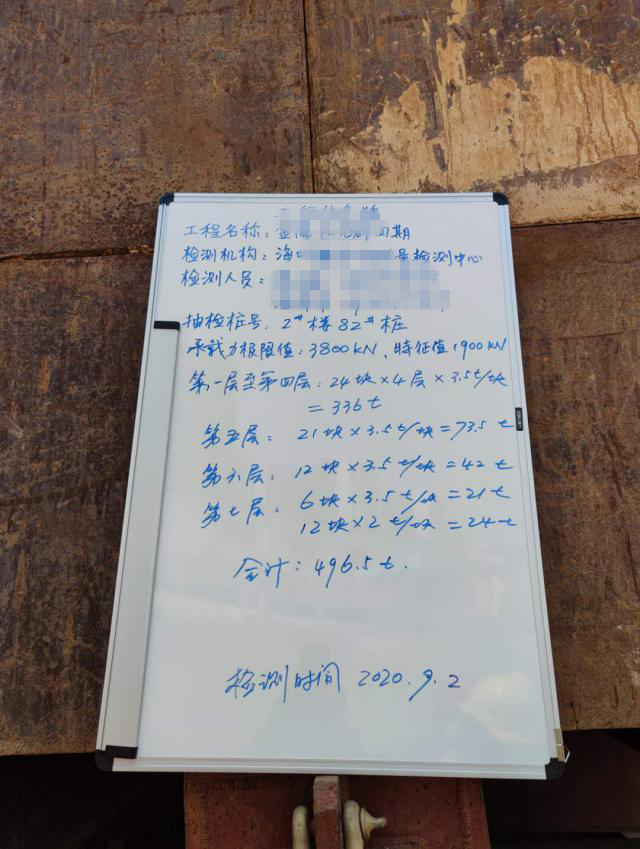 工程名称:
四期
检测机构: 海
号检测中心
检测人员:
抽检桩号: 2#楼82#桩
承载力极限值: 3800KN、特征值1900KN
第一层至第四层: 24块×4层×3.5t/块
=336t
第五层: 21块×3.5t/块=73.5t
第六层: 12块×3.5t/块=42t
第七层: 6块×3.5t/块=21t
12块×2t/块=24t
合计: 496.5t.
检测时间 2020.9.2